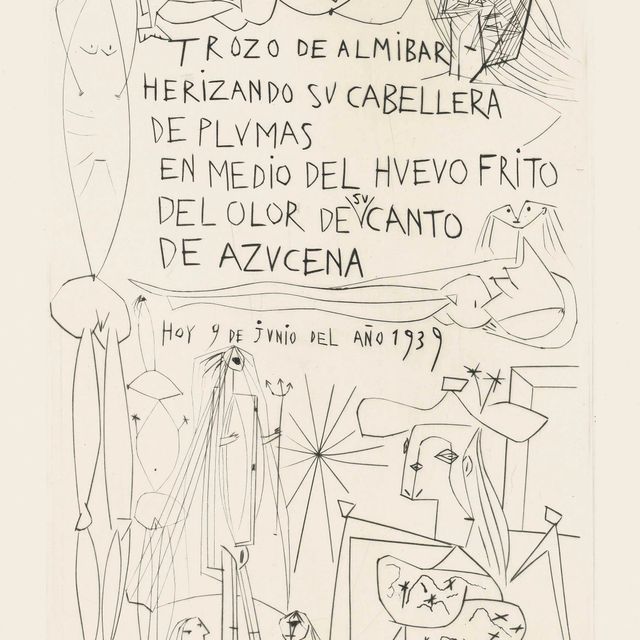 TROZO DE ALMIBAR
HERIZANDO SV CABELLERA
DE PLVMAS
EN MEDIO DEL HVEVO FRITO
DEL OLOR DE SV CANTO
DE AZVCENA
HOY 9 DE jVNIO DEL AÑO 1939